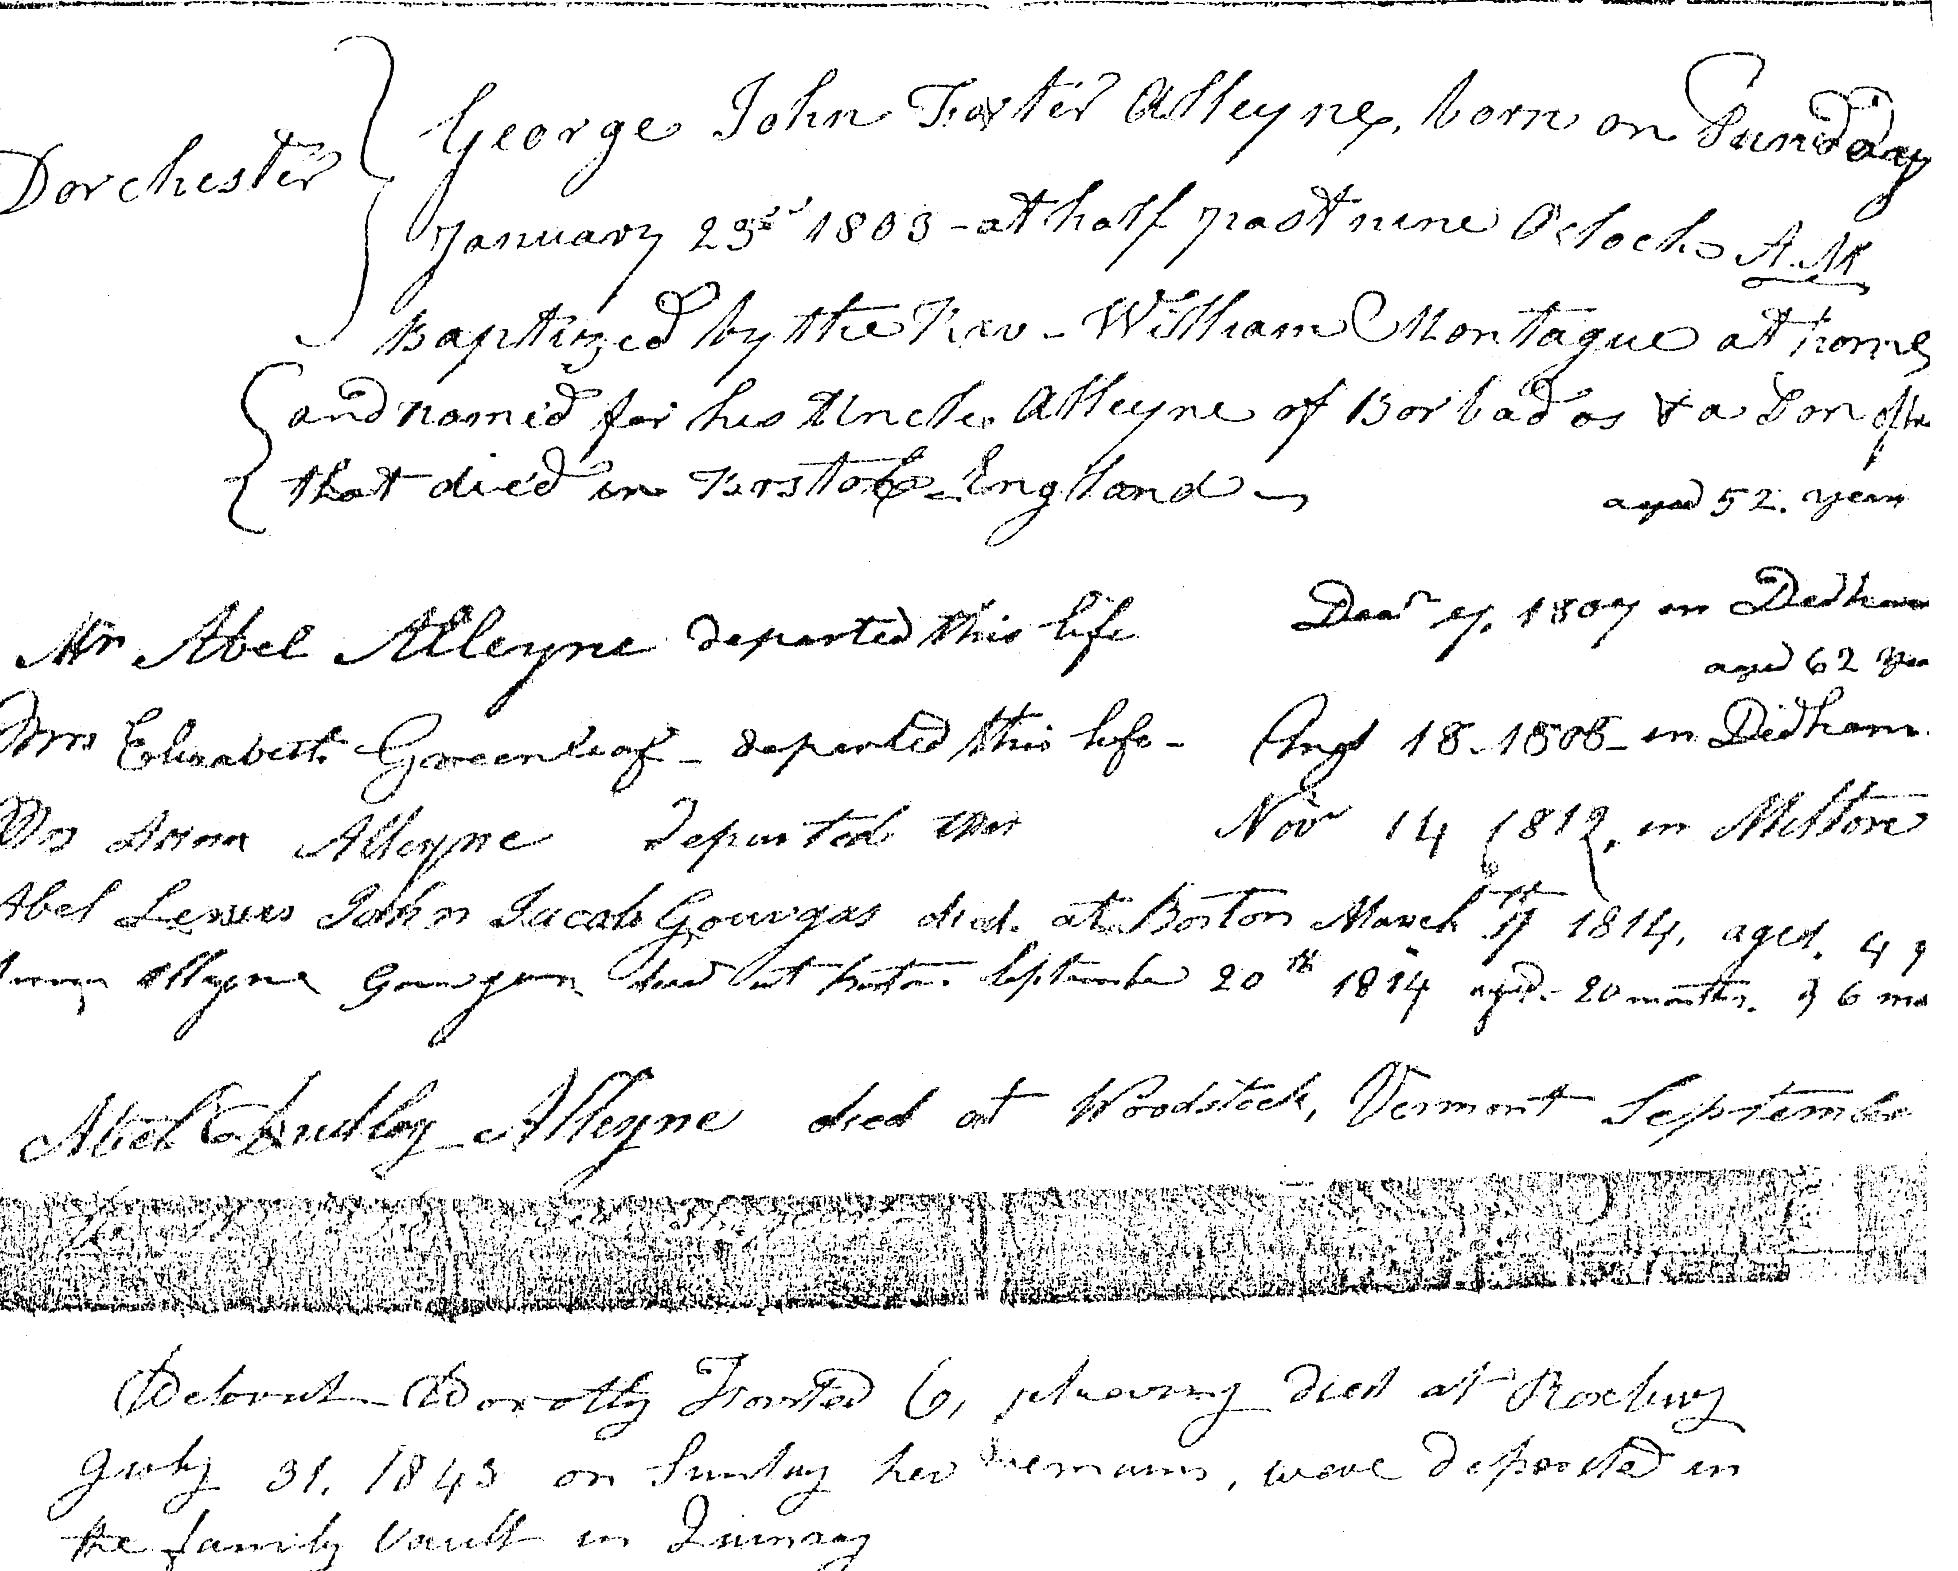 George John Forster Alleyne, born on Sunday
Dorchester
January 23d 1803 - at half past nine Oclock A.M
Baptized by the Rev - William Montague at home
and named for his Uncle Alleyne of Barbados & a Son of
that died in Bristol - England -
aged 52. years
Mr Abel Alleyne departed this life Decr 7. 1807 in Dedham
aged 62
Mrs Elizabeth Greenleaf - departed this life - Augt 18 - 1808 - in Dedham
Alleyne departed this Novr 14 1812, in Milton
Abel John Jacob Gourgas died. at Boston March 1814, aged. 4
Alleyne Gourgas died at Boston September 20th 1814 aged - 20 months. & 6
Abel Dudley Alleyne died at Woodstock, Vermont September
Deborah Dorothy died at Roxbury
July 31. 1843 on Sunday her remains, were deposited in
the family vault in Quincy